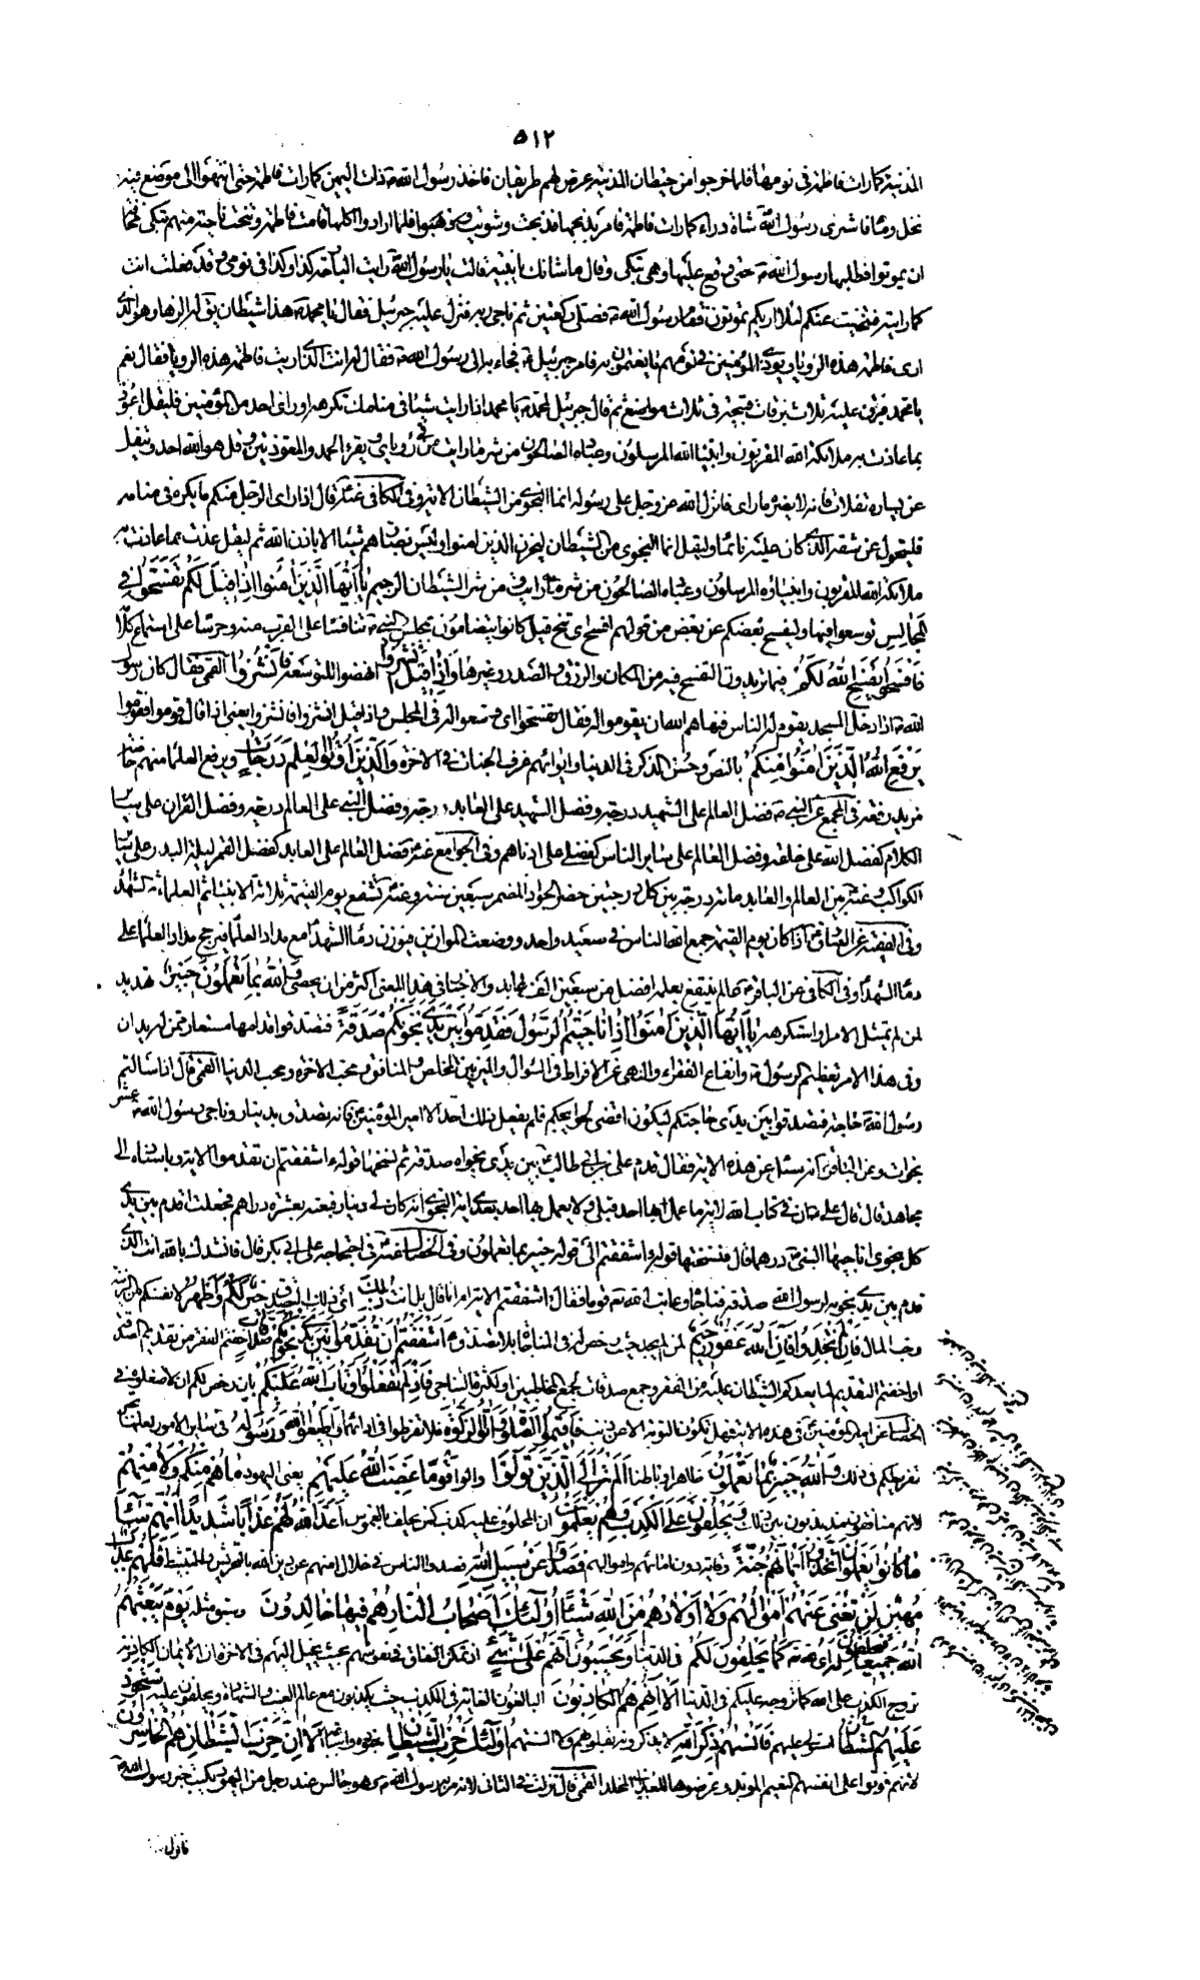 ٥١٢
المدينة كما رات فاطمة في نومها فلما خرجوا من حيطان المدينة عرض لهم طريقان فاخذ رسول الله ذات اليمين كما رات فاطمة حتى انتهوا الى موضع فيه
نخل وماء فاشترى رسول الله شاة ذراء كما رات فاطمة فامر بذبحها فذبحت وشويت فلما ارادوا اكلها قامت فاطمة وتنحت ناحية منهم تبكى مخافة
ان يموتوا فطلبها رسول الله حتى وقع عليها وهى تبكى وقال ما شانك يا بنية قالت يا رسول الله رايت البارحة كذا وكذا في نومى وقد فعلت انت
كما رايته فتنحيت عنكم لئلا اريكم تموتون فقام رسول الله فصلى ركعتين ثم ناجى ربه فنزل عليه جبرئيل فقال يا محمد هذا شيطان يقال له الرها وهو الذى
ارى فاطمة هذه الرؤيا ويوذى المؤمنين في نومهم ما يغتمون به فامر جبرئيل فجاء به الى رسول الله فقال له انت الذى اريت فاطمة هذه الرؤيا فقال نعم
يا محمد فبزق عليه ثلاث بزقات فشجه في ثلاث مواضع ثم قال جبرئيل لمحمد يا محمد اذا رايت شيئا في منامك تكرهه او راى احد من المؤمنين فليقل اعوذ
بما عاذت به ملائكة الله المقربون وانبياء الله المرسلون وعباده الصالحون من شر ما رايت من رؤياى ويقرء الحمد والمعوذتين وقل هو الله احد ويتفل
عن يساره ثلاث تفلات فانه لا يضره ما راى فانزل الله عز وجل على رسوله انما النجوى من الشيطان الاية وفي الكافي عنه قال اذا راى الرجل منكم ما يكره في منامه
فليتحول عن شقه الذى كان عليه نائما وليقل انما النجوى من الشيطان ليحزن الذين امنوا وليس بضارهم شيئا الا باذن الله ثم ليقل عذت بما عاذت به
ملائكة الله المقربون وانبياؤه المرسلون وعباده الصالحون من شر ما رايت ومن شر الشيطان الرجيم يا ايها الذين امنوا اذا قيل لكم تفسحوا في
المجالس توسعوا فيها وليفسح بعضكم عن بعض من قولهم افسح اى تنح قيل كانوا يتضامون بمجلس النبى تنافسا على القرب منه وحرصا على استماع كلامه
فافسحوا يفسح الله لكم فيما تريدون التفسح فيه من المكان والرزق والصدر وغيرها واذا قيل انشزوا انهضوا للتوسعة فانشزوا القمى فقال كان رسول
الله اذا دخل المسجد يقوم له الناس فنهاهم الله ان يقوموا له فقال تفسحوا اى وسعوا له في المجلس واذا قيل انشزوا فانشزوا يعنى اذا قال قوموا فقوموا
يرفع الله الذين امنوا منكم بالنصر وحسن الذكر في الدنيا وايوائهم غرف الجنات في الاخرة والذين اوتوا العلم درجات ويرفع العلماء منهم خاصة
مزيد رفعة في المجمع عن النبى فضل العالم على الشهيد درجة وفضل الشهيد على العابد درجة وفضل النبى على العالم درجة وفضل القران على ساير
الكلام كفضل الله على خلقه وفضل العالم على ساير الناس كفضلى على ادناهم وفي الجوامع عنه فضل العالم على العابد كفضل القمر ليلة البدر على ساير
الكواكب وعنه بين العالم والعابد مائة درجة بين كل درجتين حضر الجواد المضمر سبعين سنة وعنه يشفع يوم القيمة ثلاثة الانبياء ثم العلماء ثم الشهداء
وفي الفقيه عن الصادق اذا كان يوم القيمة جمع الله الناس في صعيد واحد ووضعت الموازين فيوزن دماء الشهداء مع مداد العلماء فيرجح مداد العلماء على
دماء الشهداء وفي الكافي عن الباقر عالم ينتفع بعلمه افضل من سبعين الف عابد والاخبار في هذا المعنى اكثر من ان يحصى والله بما تعملون خبير تهديد
لمن لم يتمثل الامر او استكرهه يا ايها الذين امنوا اذا ناجيتم الرسول فقدموا بين يدى نجويكم صدقة فتصدقوا قدامها مستعار ممن له يدان
وفي هذا الامر تعظيم الرسول وانفاع الفقراء والنهى عن الافراط في السؤال والميز بين المخلص والمنافق ومحب الاخرة ومحب الدنيا القمى قال اذا سالتم
رسول الله حاجة فتصدقوا بين يدى حاجتكم ليكون اقضى لحوايجكم فلم يفعل ذلك احد الا امير المؤمنين فانه تصدق بدينار وناجى رسول الله عشر
نجوات وعن الباقر انه سئل عن هذه الاية فقال قدم على بن ابى طالب بين يدى نجواه صدقة ثم نسختها قوله ءاشفقتم ان تقدموا الاية وباسناده الى
مجاهد قال قال على ان في كتاب الله لاية ما عمل بها احد قبلى ولا يعمل بها احد بعدى اية النجوى انه كان لى دينار فبعته بعشرة دراهم فجعلت اقدم بين يدى
كل نجوى اناجيها النبى درهما قال فنسختها قوله ءاشفقتم الى قوله خبير بما تعملون وفي الخصال عنه في احتجاجه على ابى بكر قال فانشدك بالله انت الذى
قدم بين يدى نجويه لرسول الله صدقة فناجاه وعاتب الله قوما فقال ءاشفقتم الاية ام انا قال بل انت ذلك اى ذلك التصدق خير لكم واطهر لانفسكم من الريبة
وحب المال فان لم تجدوا فان الله غفور رحيم لمن لم يجد حيث رخص له في المناجاة بلا تصدق ءاشفقتم ان تقدموا بين يدى نجويكم صدقات اخفتم الفقر من تقديم الصدقة
او اخفتم التقديم لما يعدكم الشيطان عليه من الفقر وجمع صدقات لجمع المخاطبين او لكثرة التناجى فاذ لم تفعلوا وتاب الله عليكم بان رخص لكم ان لا تفعلوه في
الخصال عن امير المؤمنين في هذه الاية فهل تكون التوبة الا عن ذنب فاقيموا الصلوة واتوا الزكوة فلا تفرطوا في ادائهما واطيعوا الله ورسوله في ساير الامور لعلها تجبر
تفريطكم في ذلك والله خبير بما تعملون ظاهرا وباطنا الم تر الى الذين تولوا والوا قوما غضب الله عليهم يعنى اليهود ما هم منكم ولا منهم
لانهم منافقون مذبذبون بين ذلك ويحلفون على الكذب وهم يعلمون ان المحلوف عليه كذب كمن يحلف بالغموس اعد الله لهم عذابا شديدا انهم ساء
ما كانوا يعملون اتخذوا ايمانهم جنة وقاية دون دمائهم واموالهم فصدوا عن سبيل الله فصدوا الناس في خلال امنهم عن دين الله بالتحريش والتثبيط فلهم عذاب
مهين لن تغنى عنهم اموالهم ولا اولادهم من الله شيئا اولئك اصحاب النار هم فيها خالدون وسبق مثله يوم يبعثهم
الله جميعا فيحلفون له اى لله كما يحلفون لكم في الدنيا ويحسبون انهم على شئ اذ تمكن النفاق في نفوسهم بحيث يخيل اليهم في الاخرة ان الايمان الكاذبة
تروج الكذب على الله كما تروجه عليكم في الدنيا الا انهم هم الكاذبون البالغون الغاية في الكذب حيث يكذبون مع عالم الغيب والشهادة ويحلفون عليه استحوذ
عليهم الشيطان استولى عليهم فانسيهم ذكر الله لا يذكرونه بقلوبهم ولا بالسنتهم اولئك حزب الشيطان جنوده واتباعه الا ان حزب الشيطان هم الخاسرون
لانهم فوتوا على انفسهم النعيم المؤبد وعرضوها للعذاب المخلد القمى قال نزلت في الثانى لانه مر به رسول الله وهو جالس عند رجل من اليهود يكتب خبر رسول الله
فانزل